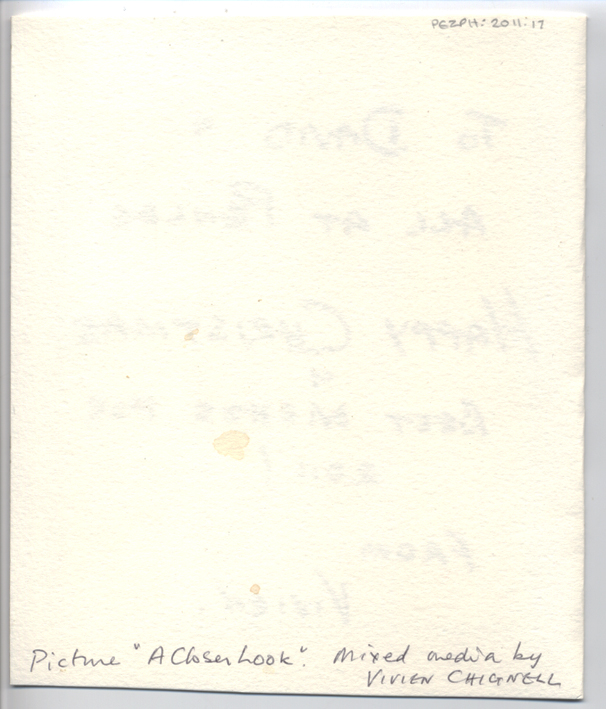 PEZPH: 2011:17
To DAVID &
ALL AT PENLEE
HAPPY CHRISTMAS
&
BEST WISHES FOR
2011!
FROM
VIVIEN.
Picture "A Closer Look". Mixed media by
VIVIEN CHIGNELL